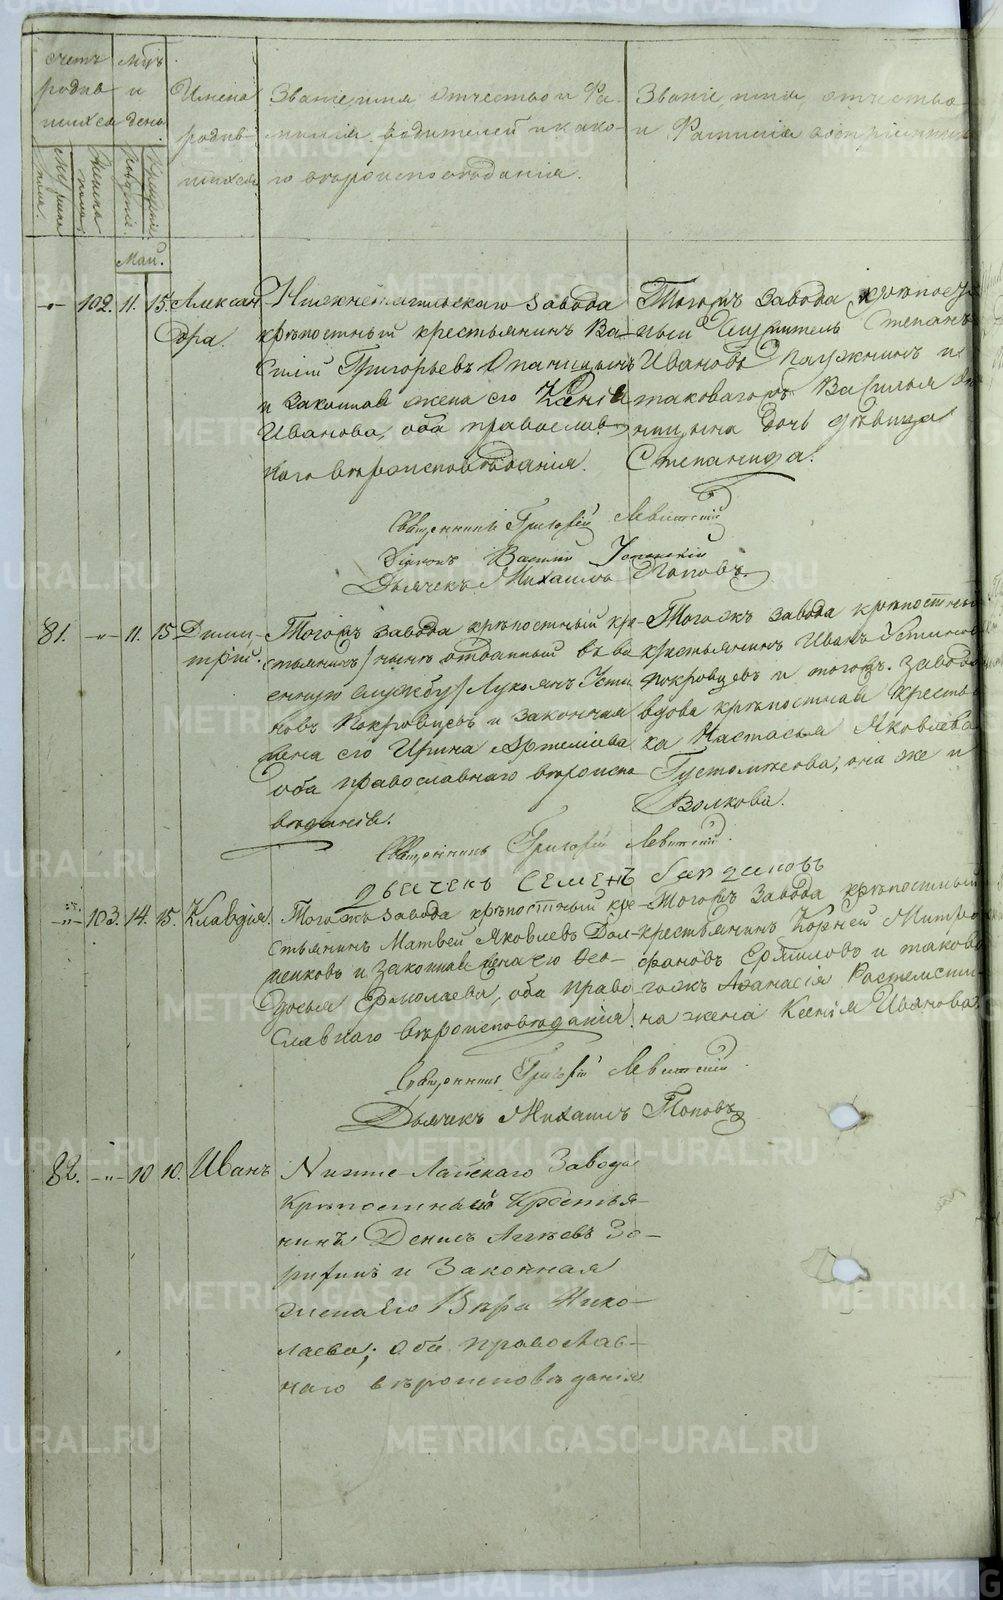 Счетъ родив шихся
Мужеска пола.
Женска пола.
Мць и день
рожденія
крещенія
Имена родив- шихся.
Званіе, имя, отчество и Фа-
милія родителей и како-
го вѣроисповѣданія.
Званіе, имя, отчество
и Фамилія воспріемник
Май.
-"- 102. 11. 15. Алексан-
дра.
Нижнетагильскаго завода
крѣпостный крестьянинъ Ва-
силій Григорьевъ
и законная жена его Ксенія
Иванова, оба православ-
наго вѣроисповѣданія.
Тогожъ завода крѣпост
ный Служитель Степанъ
Ивановъ и
таковагожъ Василья
дочь дѣвица
Степанида.
Священникъ Григорій Левитскій
Діаконъ Василій
Дьячекъ Михаилъ Поповъ
81. -"- 11. 15 Дими-
трій.
Тогожъ завода крѣпостный кре-
стьянинъ /нынѣ отданный въ во
енную службу/ Лукоянъ Усти
новъ Покровцевъ и законная
жена его Ирина Артемьева
оба православнаго вѣроиспо
вѣданія.
Тогожъ завода крѣпостный
крестьянинъ Иванъ Устинов
Покровцевъ и тогожъ завода
вдова крѣпостная крестья
ка Настасья Яковлева
Густомжсова, она же и
Волкова.
Священникъ Григорій Левитскій.
дьячекъ Семенъ
-"- 103. 14. 15. Клавдія.
Тогожъ завода крѣпостный кре-
стьянинъ Матвей Яковлевъ Дол-
женковъ и законная жена его Ѳео-
досья Ермолаева, оба право
славнаго вѣроисповѣданія.
Тогожъ завода крѣпостный
крестьянинъ Корней Митро
фановъ Ермиловъ и таково
гожъ Афанасія
на жена Ксенія Иванова.
Священникъ Григорій Левитскій
Дьячекъ Михаилъ Поповъ
82. -"- 10 10. Иванъ
Нижне-Лайскаго Завода
Крѣпостный Крестья-
нинъ Денисъ Аггѣевъ Зо-
рихинъ и Законная
жена Его Вѣра Нико-
лаева; Оба православ-
наго вѣроисповѣданія
METRIKI.GASO-URAL.RU